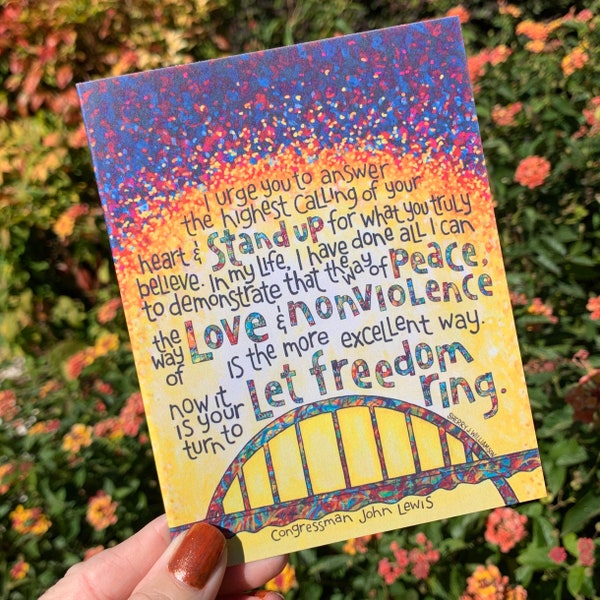 I urge you to answer
the highest calling of your
heart & Stand up for what you truly
believe. In my life, I have done all I can
to demonstrate that the way of Peace,
the way of Love & nonviolence
is the more excellent way.
now it is your turn to Let freedom
ring.
Congressman John Lewis